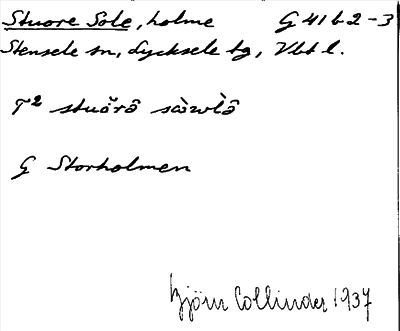 Stuore Sole, holme G 41 b 2-3
Stensele sn, Lycksele tg, Vbt l.
T² stuŏrâ
G Storholmen
Björn Collinder 1937